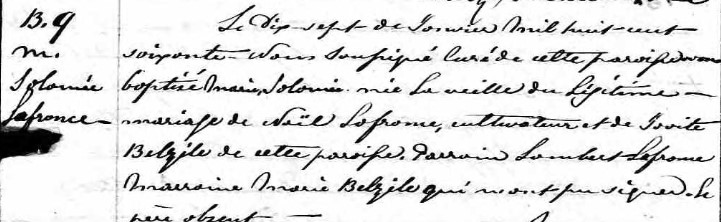 B. 9
m.
Solomée
Lafrance
Le Dix-sept de Janvier mil huit cent
soixante Nous soussigné curé de cette paroisse avons
baptisé Marie, Solomée née la veille du légitime
mariage de Noël Lafrance, cultivateur et de Jovite
Belzile de cette paroisse. Parrain Lambert Lafrance
Marraine Marie Belzile qui n'ont pu signer. Le
père absent